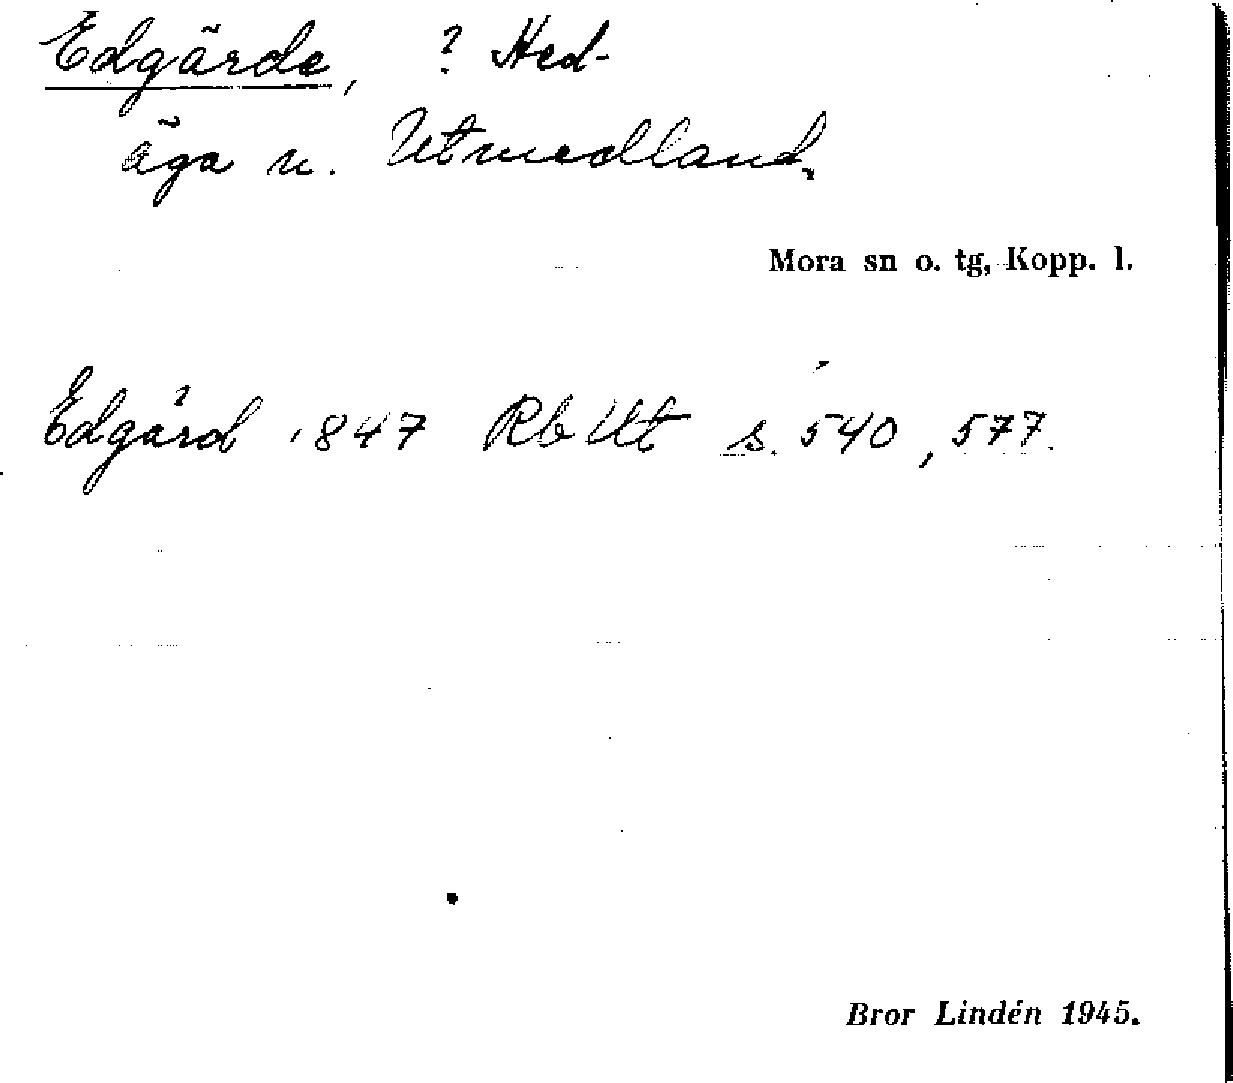 Edgärde, ? Hed-
äga n. Utmedland.
Mora sn o. tg, Kopp. l.
Edgärd 1847 Rb Ut s. 540, 577.
Bror Lindén 1945.